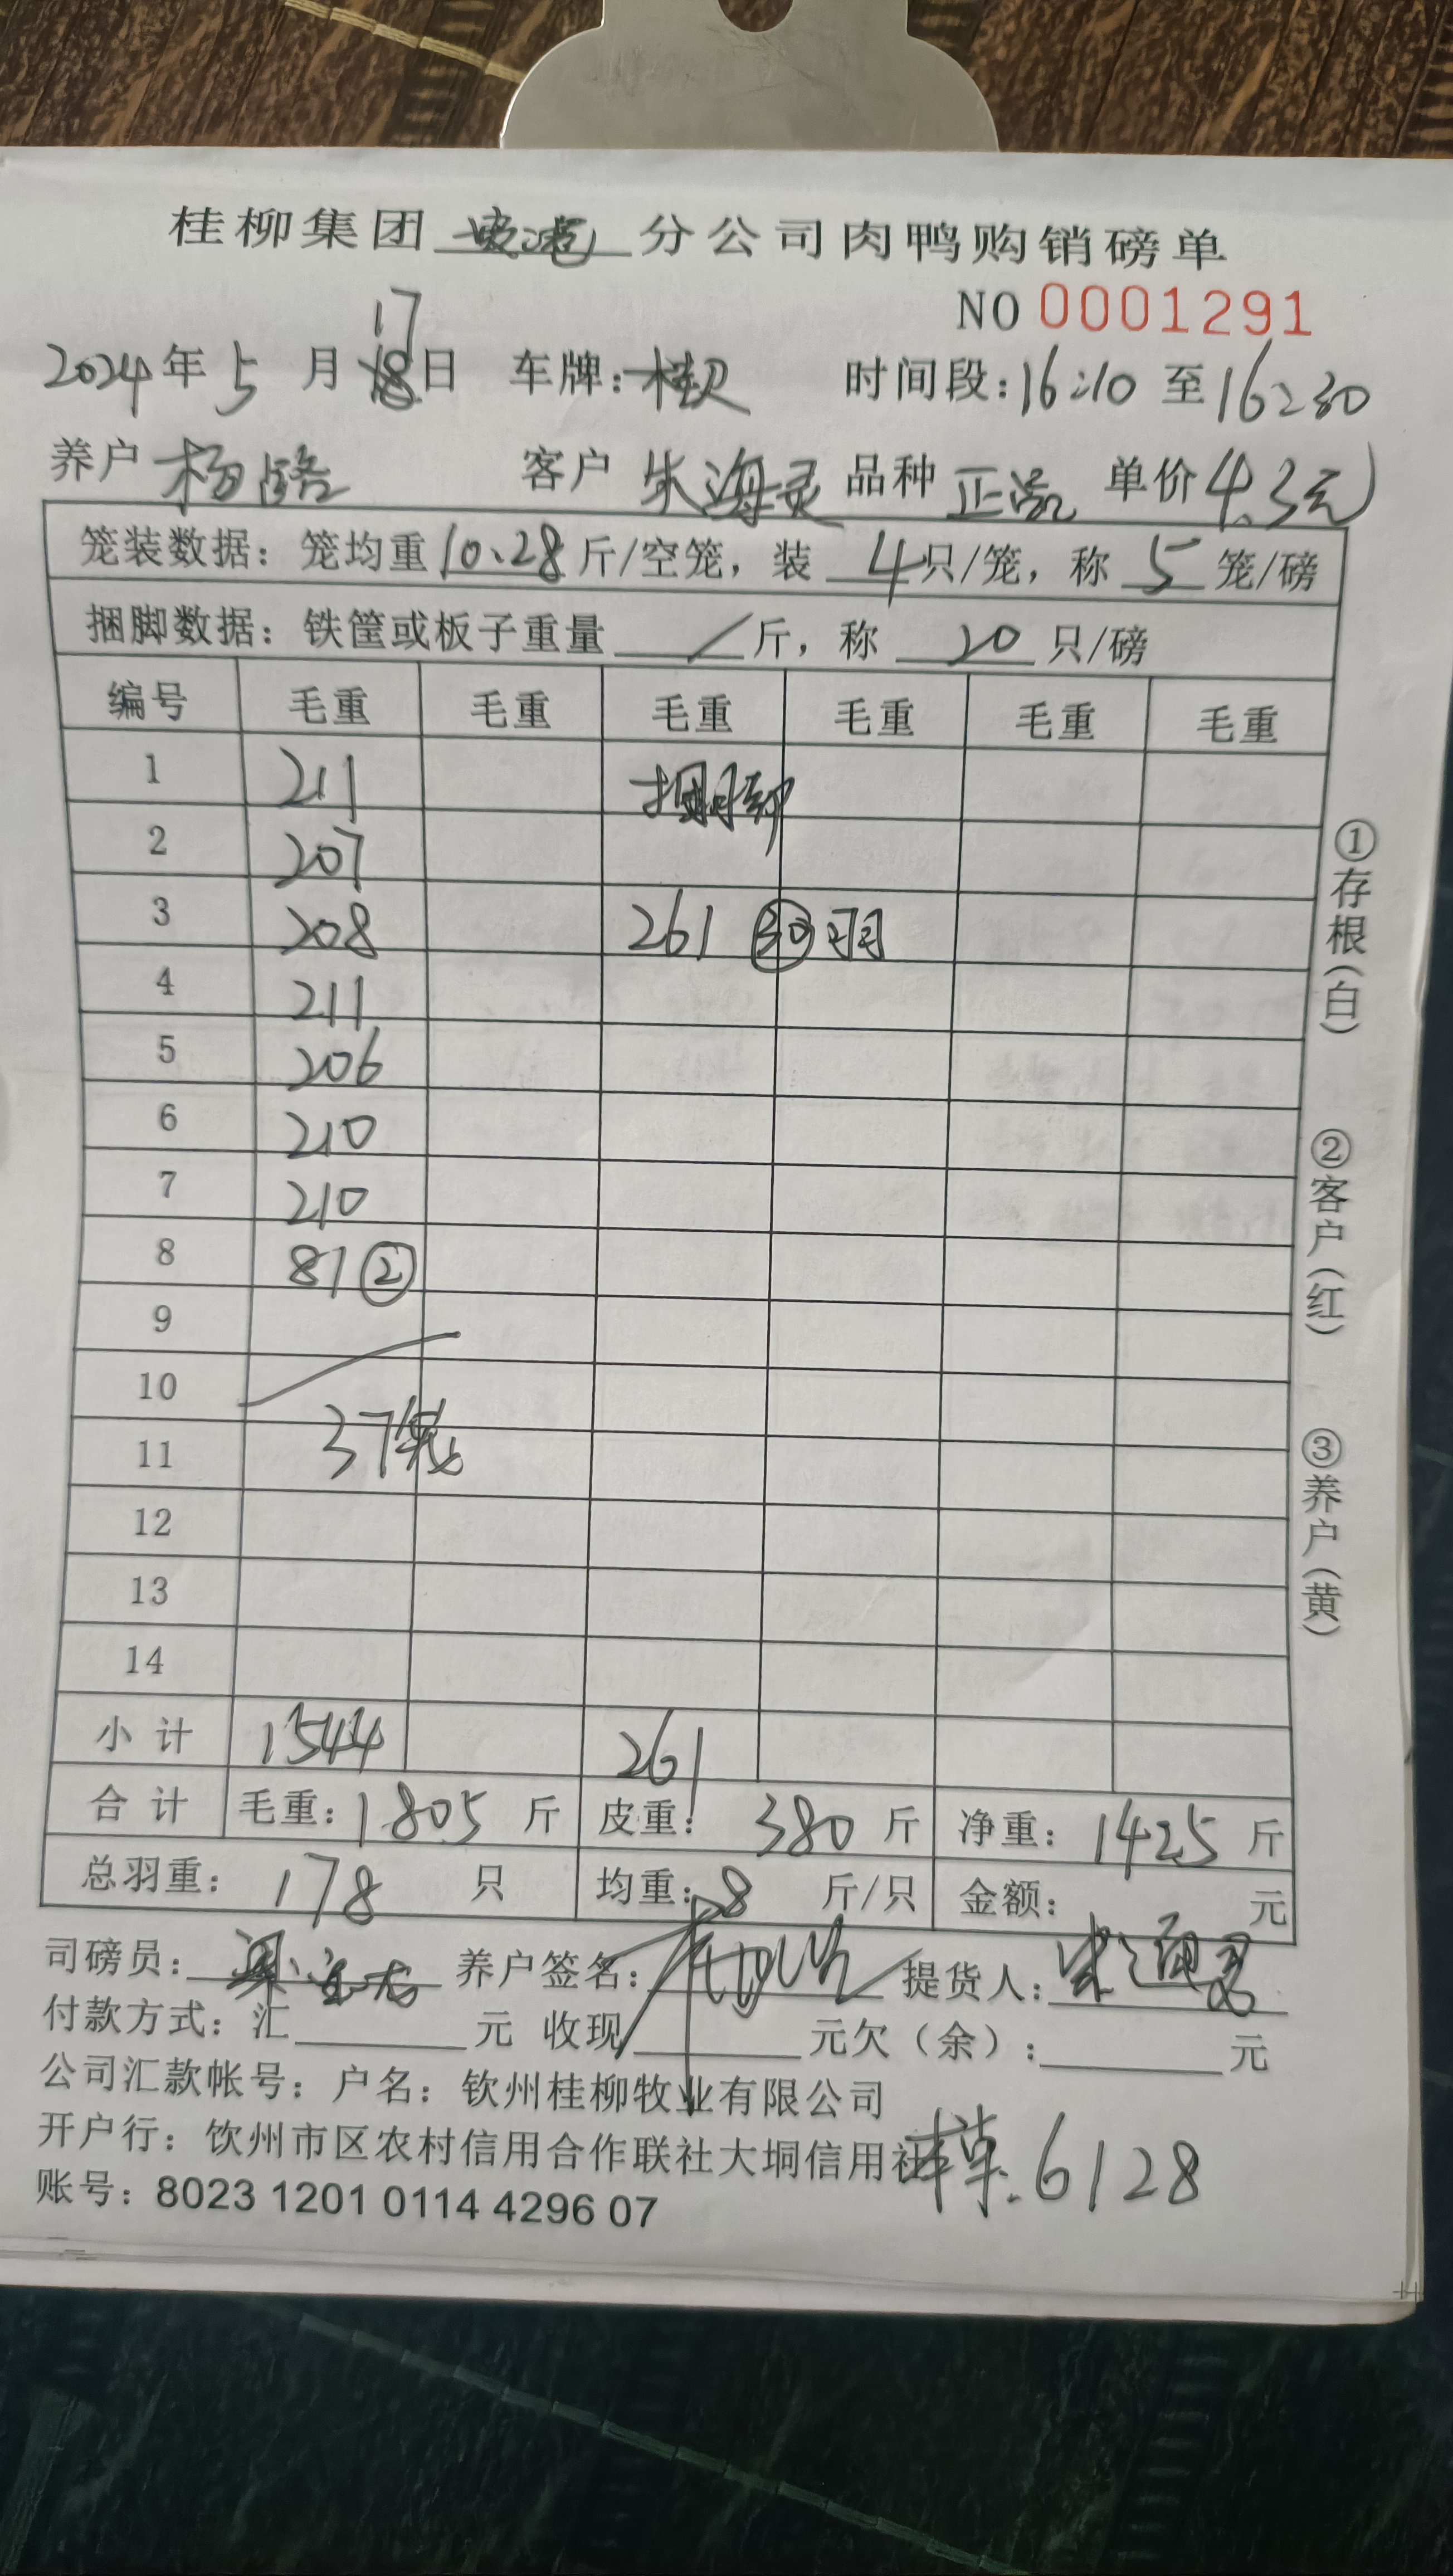 桂柳集团 分公司肉鸭购销磅单
NO 0001291
17
2024年 5 月 18 日 车牌: 时间段:16:10 至 16:30
养户 杨 客户 朱海灵 品种 正常 单价 4.3元
笼装数据: 笼均重 10.28 斤/空笼, 装 4 只/笼, 称 5 笼/磅
捆脚数据: 铁筐或板子重量 / 斤, 称 20 只/磅
编号 毛重 毛重 毛重 毛重 毛重 毛重
1 211 捆脚
2 207
3 208 261 30 羽
4 211
5 206
6 210
7 210
8 81 ②
9
10
11 37笼
12
13
14
小计 1544 261
合计 毛重: 1805 斤 皮重: 380 斤 净重: 1425 斤
总羽重: 178 只 均重: 8 斤/只 金额: 元
司磅员: 养户签名: 提货人: 朱海灵
付款方式: 汇 元 收现 元欠(余): 元
公司汇款帐号: 户名: 钦州桂柳牧业有限公司
开户行: 饮州市区农村信用合作联社大垌信用社
6128
账号: 8023 1201 0114 4296 07
①存根(白)
②客户(红)
③养户(黄)